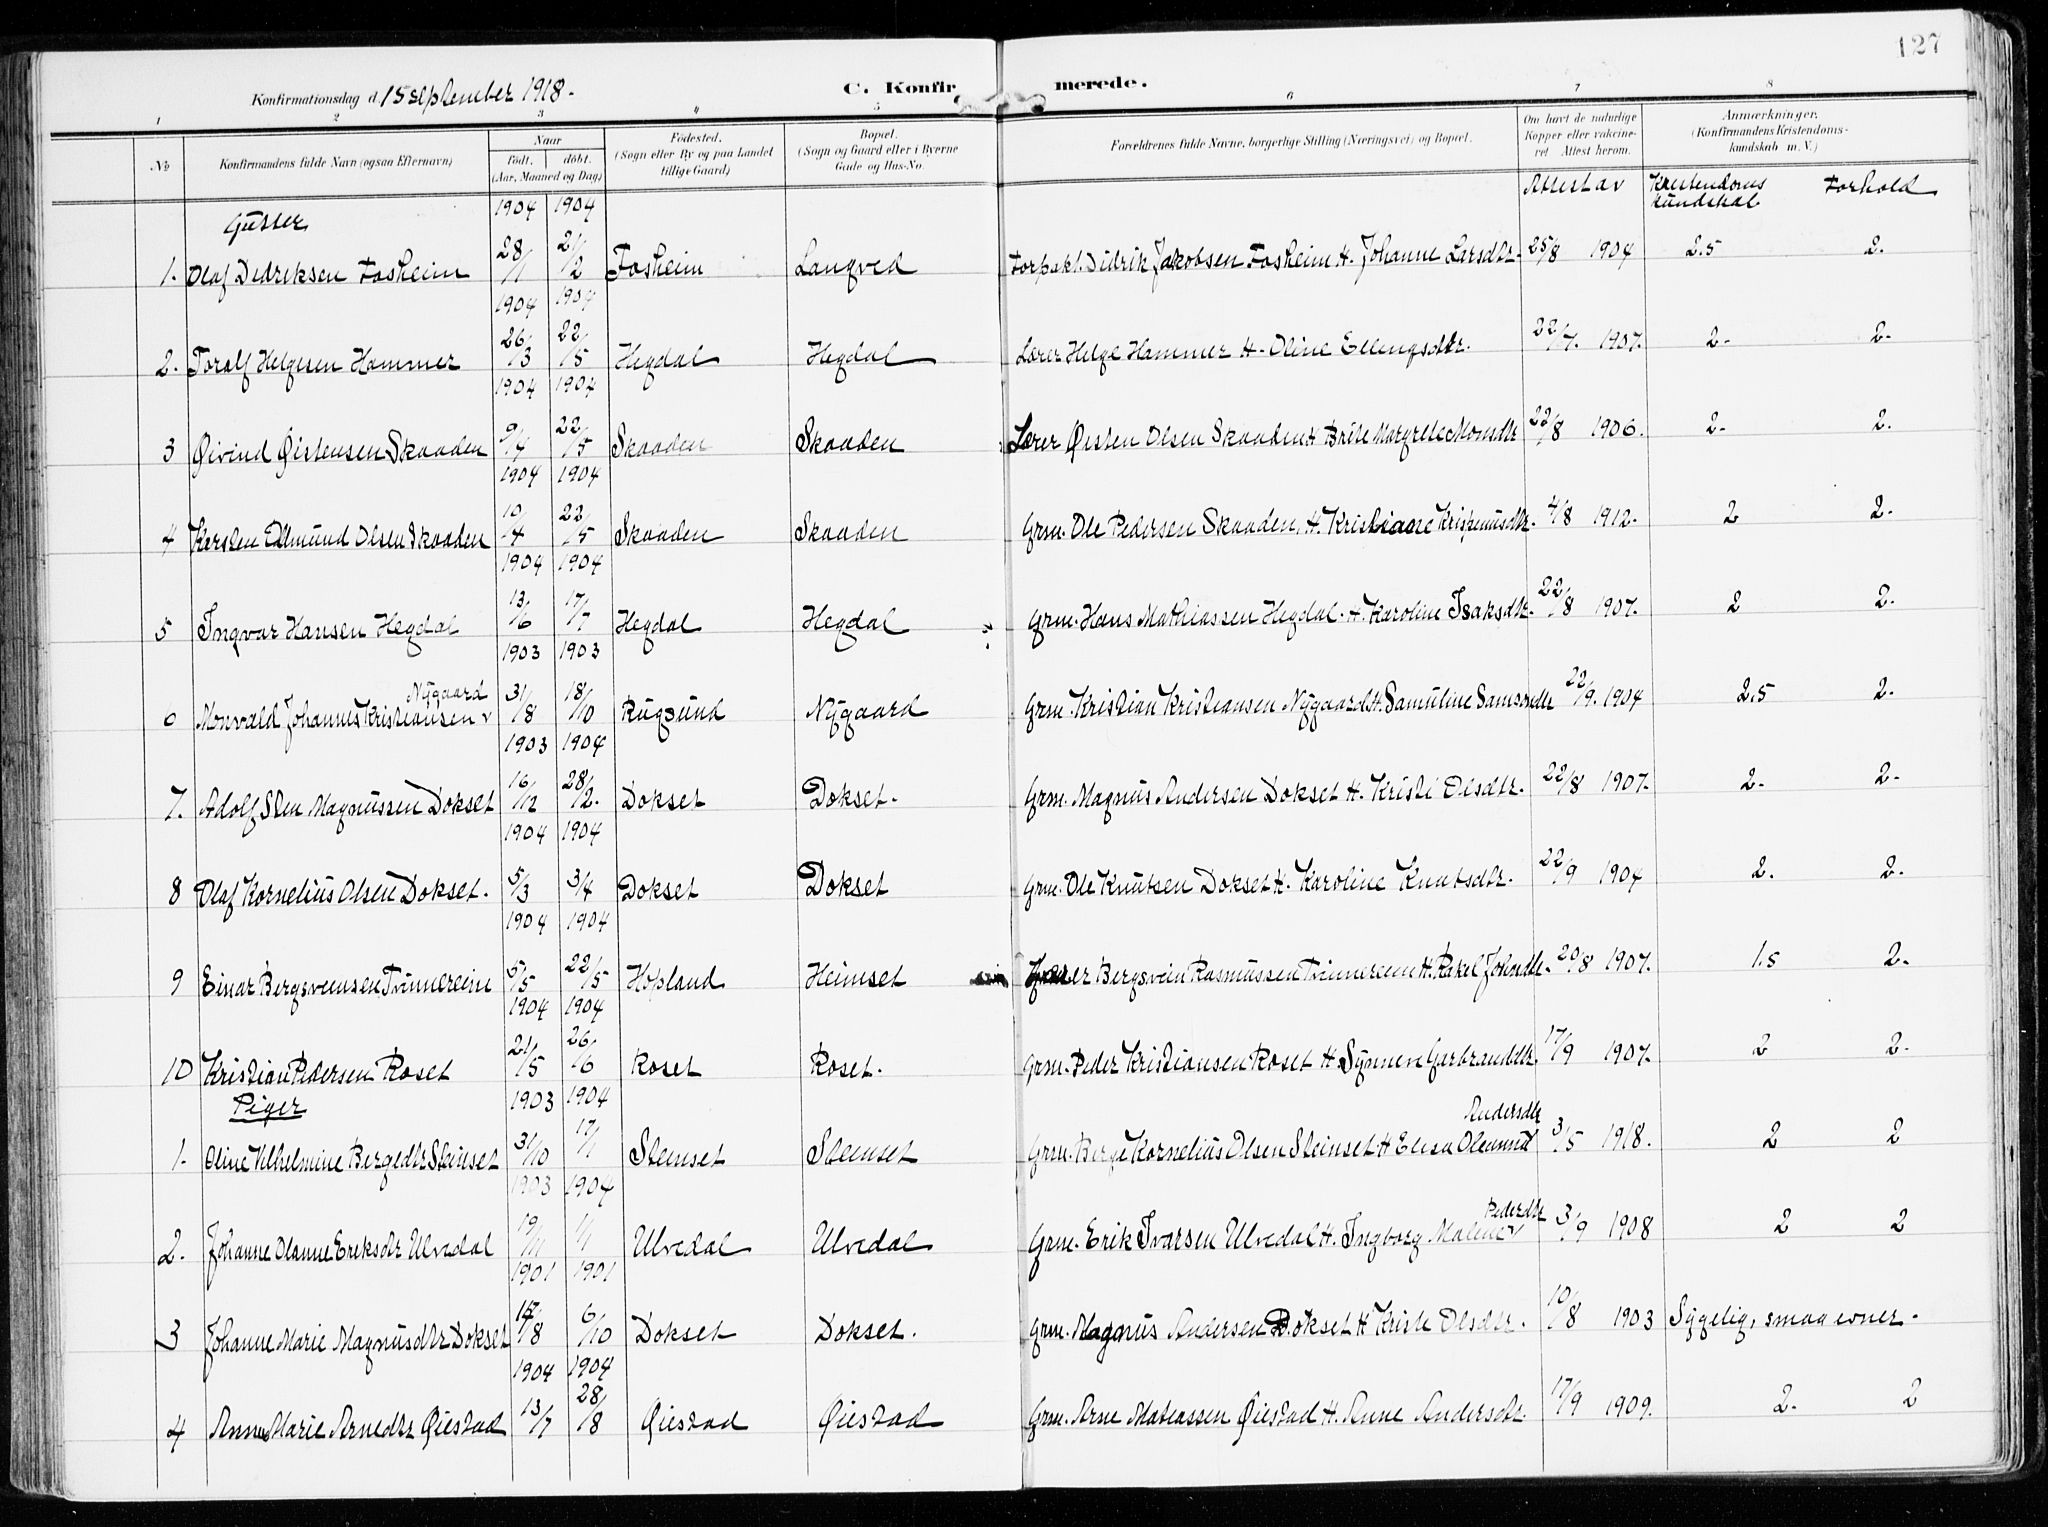 127
Konfirmationsdag d. 15 september 1918.
C. Konfirmerede.
1 2 3 4 5 6 7 8
No
Konfirmandens fulde Navn (ogsaa Efternavn)
Naar
Født. døbt.
(Aar, Maaned og Dag)
Fødested.
(Sogn eller By og paa Landet
tillige Gaard)
Bopæl.
(Sogn og Gaard eller i Byerne
Gade og Hus-No.
Forældrenes fulde Navne, borgerlige Stilling (Næringsvei) og Bopæl.
Om havt de naturlige
Kopper eller vakcine-
ret Attest herom.
Anmærkninger.
(Konfirmandens Kristendoms-
kundskab m. V.)
Attest av Kristendoms kundskab Forhold
Gutter
1904 1904
1. Olaf Didriksen Fosheim 28/1 21/2 Fosheim Langved Forpakt. Didrik Jakobsen Fosheim H. Johanne Larsdtr. 25/8 1904 2.5 2.
1904 1904
2. Toralf Helgesen Hammer 26/3 22/5 Hegdal Hegdal Lærer Helge Hammer H. Oline Ellingsdtr. 22/7. 1907. 2- 2-
1904 1904
3 Øivind Øistensen Skaaden 9/4 22/5 Skaaden Skaaden Lærer Øisten Olsen Skaaden H Brite Margrete Monsdtr 22/8 1906. 2- 2.
1904 1904
4 Karsten Edmund Olsen Skaaden 10/4 22/5 Skaaden Skaaden Grm. Ole Pedersen Skaaden, H. Kristiane Kristensdtr. 4/8 1912. 2 2.
1904 1904
5 Ingvar Hansen Hegdal 13/6 17/7 Hegdal Hegdal Grm. Hans Mathiassen Hegdal. H. Karoline Isaksdtr. 22/8 1907. 2 2.
1903 1903
6 Monvald Johannes Kristiansen v Nygaard 31/8 18/10 Rugsund Nygaard Grm. Kristian Kristiansen Nygaard H. Samuline Samsondtr 22/9. 1904 2.5 2.
1903 1904
7. Adolf Sten Magnussen Dokset 16/12 28/2. Dokset Dokset. Grm. Magnus Andersen Dokset H. Kristi Olsdtr. 22/8 1907. 2- 2-
1904 1904
8 Olaf Kornelius Olsen Dokset. 5/3 3/4 Dokset Dokset Grm. Ole Knutsen Dokset H. Karoline Knutsdtr. 22/9 1904 2. 2.
1904 1904
9 Einar Bergsveinsen Tvinnereim 5/5 22/5 Hopland Heimset Lærer Bergsvein Rasmussen Tvinnereim H. Rakel Johndtr. 20/8 1907. 1.5 2.
1904 1904
10 Kristian Pedersen Roset 21/5 26/6 Roset Roset. Grm. Peder Kristiansen Roset H. Synneve Garbranddtr. 17/9 1907. 2 2.
Piger
1903 1904
1. Oline Vilhelmine Bergedtr Steinset 31/10 17/1 Steinset Steinset Grm. Berge Kornelius Olsen Steinset H Elisa Andersdtr 3/5 1918. 2 2
1903 1904
2. Johanne Olanne Eriksdtr Ulvedal 19/11 1/1 Ulvedal Ulvedal Grm. Erik Ivarsen Ulvedal H. Ingborg Malene v Pederdtr 3/9 1908 2 2
1901 1901
3 Johanne Marie Magnusdtr Dokset /8 6/10 Dokset Dokset. Grm. Magnus Andersen Dokset H Kristi Olsdtr. 10/8 1903 Sygelig, smaa evner.
1904 1904
4 Anna Marie Arnedtr Øiestad 13/7 28/8 Øiestad Øiestad Grm. Arne Matiassen Øiestad H. Anne Andersdtr. 17/9 1909. 2. 2